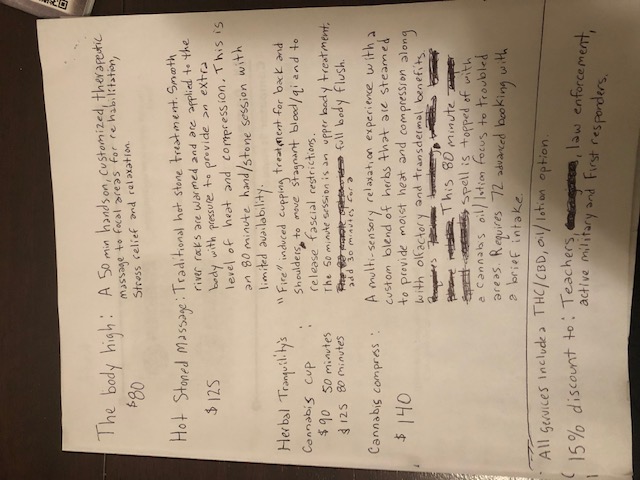 The body high: A 50 min hands on, customized, therapeutic
$80 massage to focal areas for rehabilitation,
Stress relief and relaxation.
Hot Stoned Massage: Traditional hot stone treatment. Smooth
$125 river rocks are warmed and are applied to the
body with pressure to provide an extra
level of heat and compression. This is
an 80 minute hand/stone session with
limited availability.
Herbal Tranquility's "Fire" induced cupping treatment for back and
Cannabis cup : shoulders, to move stagnant blood/qi and to
release fascial restrictions.
$90 50 minutes The 50 minute session is an upper body treatment,
$125 80 minutes full body flush.
add 30 minutes for a
Cannabis compress : A multi-sensory relaxation experience with a
$140 custom blend of herbs that are steamed
to provide moist heat and compression along
with olfactory and transdermal benefits.
This 80 minute
spell is topped of with
a cannabis oil/lotion focus to troubled
areas. Requires 72 advanced booking with
a brief intake.
All services include a THC/CBD, oil/lotion option.
15% discount to: Teachers, law enforcement,
active military and first responders.